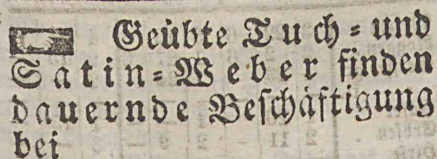 ☞ Geübte Tuch= und
Satin=Weber finden
dauernde Beſchäftigung
bei